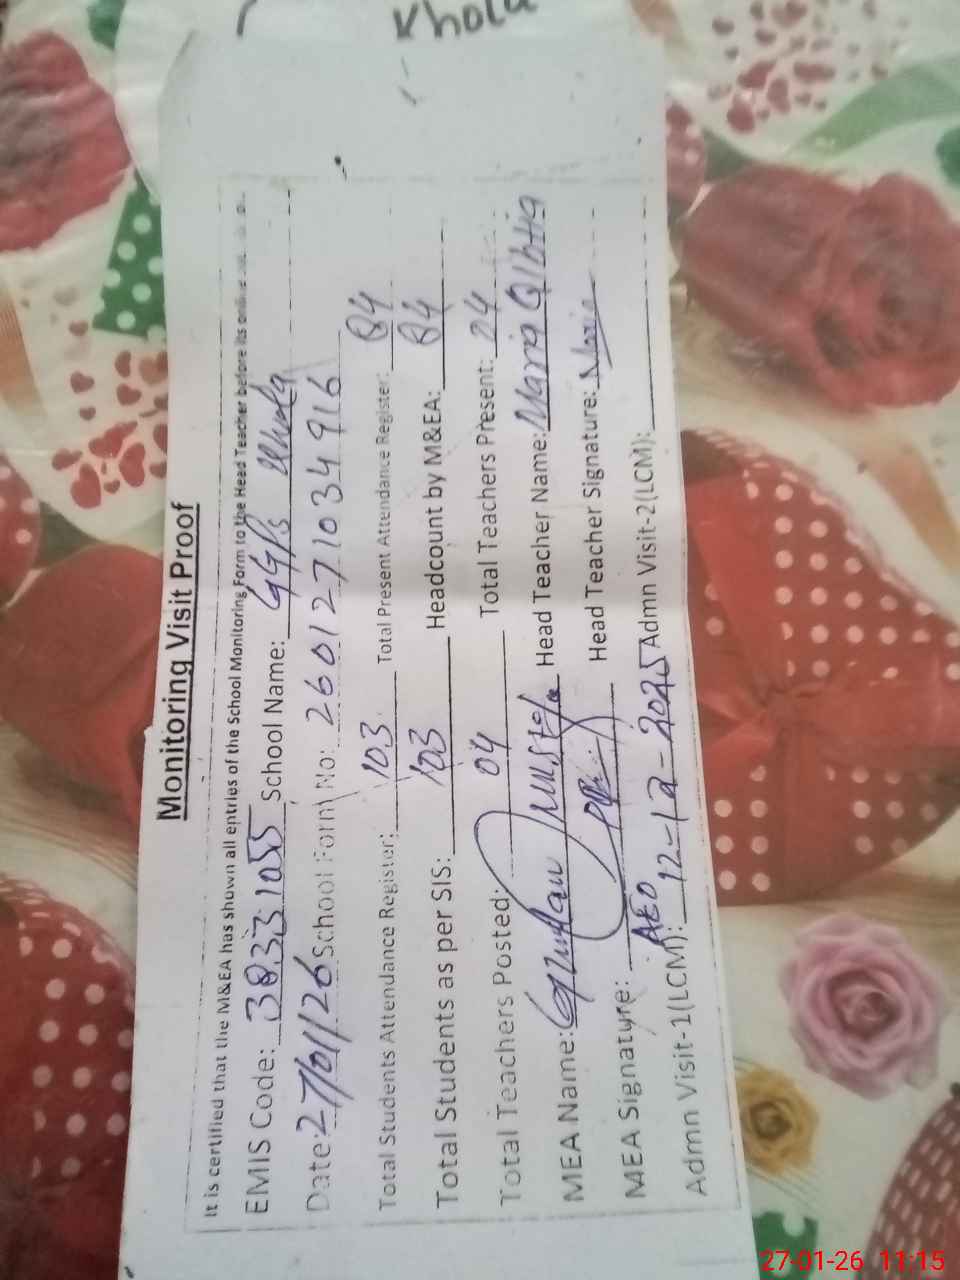 Khola
Monitoring Visit Proof
It is certified that the M&EA has shown all entries of the School Monitoring Form to the Head Teacher before its online
EMIS Code: 38331055 School Name: GGPS Khola
Date: 27/01/26 School Form No: 2601271034916
Total Students Attendance Register: 103 Total Present Attendance Register: 84
Total Students as per SIS: 103 Headcount by M&EA: 84
Total Teachers Posted: 04 Total Teachers Present: 04
MEA Name: Ghulam Mustafa Head Teacher Name: Maria Qibtia
MEA Signature: Head Teacher Signature: Maria
AEO
Admn Visit-1(LCM): 12-12-2025 Admn Visit-2(LCM):
27-01-26 11:15